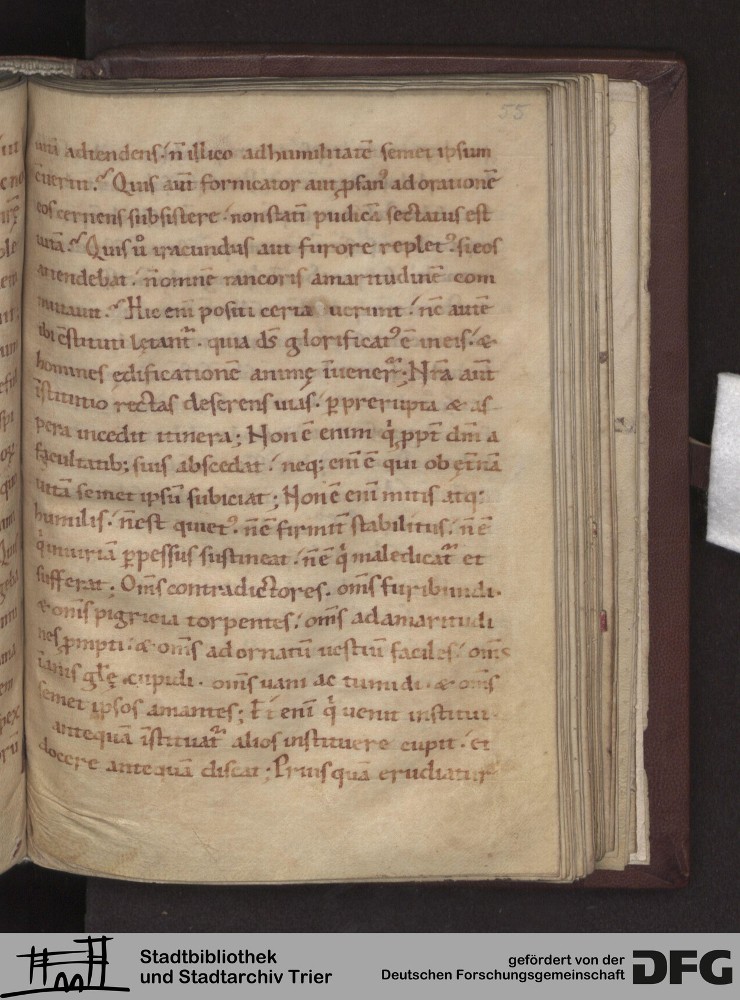 55
adtendens. n̄ illico ad humilitatē semet ipsum
Quis aūt fornicator aut ꝓfanꝰ ad orationē
eos cernens subsistere. non statī pudicā sectatus est
uitā. Quis ů iracundus aut furore repletꝰ. si eos
attendebat. n̄ omnē rancoris amaritudinē com
mutauit. Hic enī positi certauerunt. n̄c autē
ibi c̄stituti lętant᷑. quia ds̄ glorificatꝰ ē in eis. &
homines ędificationē animę īuener᷑. Nr̄a aūt
īstitutio rectas deserens uias. ꝑ prerupta & as
pera incedit itinera; Non ē enim q̇ ꝓpt̄ dm̄ a
facultatib; suis abscedat. neq; enī ē qui ob et̄nā
uitā semet ipsū subiciat; Non ē enī mitis atq;
humilis. n̄ est quietꝰ. n̄ ē firmit̄ stabilitus. n̄ ē
q̇ iniuriā ꝑpessus sustineat. n̄ ē q̇ maledicat᷑ et
sufferat; Om̄s contradictores. om̄s furibundi.
& om̄s pigricia torpentes. om̄s ad amaritudi
nes ꝓmpti. & om̄s ad ornatū uestiū faciles. om̄s
īanis glę̄ cupidi. om̄s uani ac tumidi. & om̄s
semet ipsos amantes; enī q̇ uenit institui.
antequā īstituat᷑ alios instituere cupit. et
docere antequā discat; Priusquā erudiatur
Stadtbibliothek
und Stadtarchiv Trier
gefördert von der
Deutschen Forschungsgemeinschaft
DFG